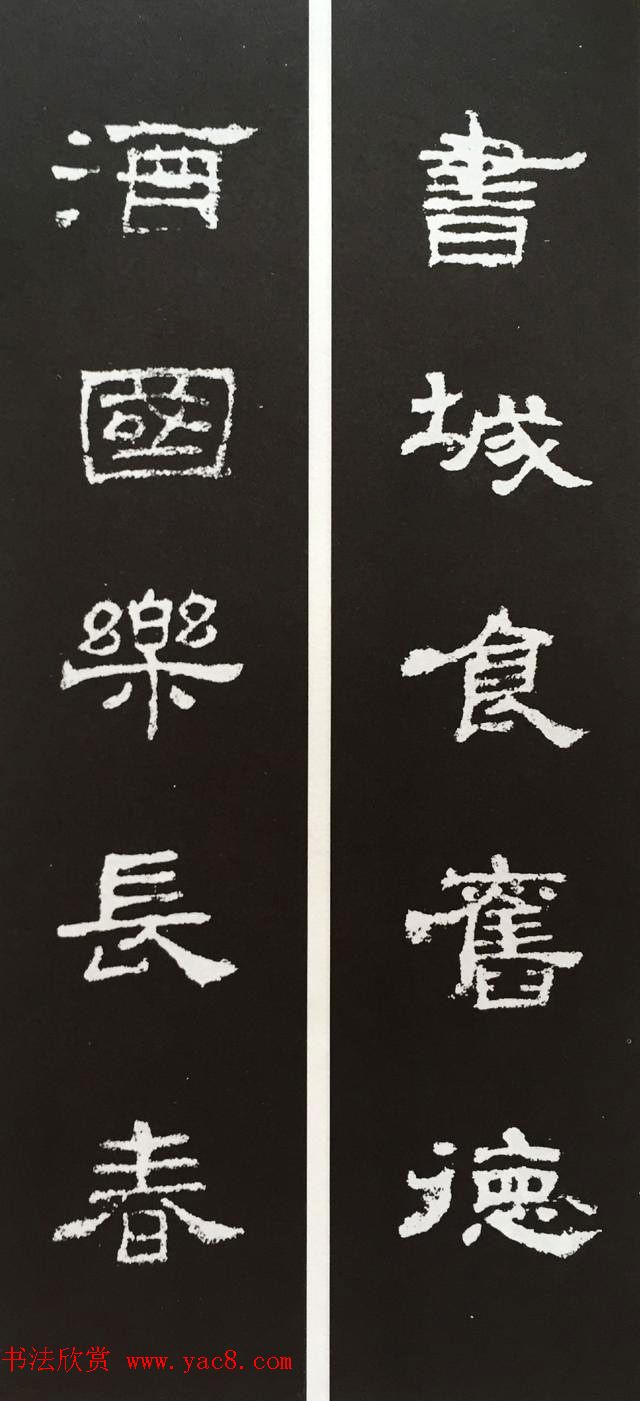 書城食舊德
酒國樂長春
书法欣赏 www.yac8.com